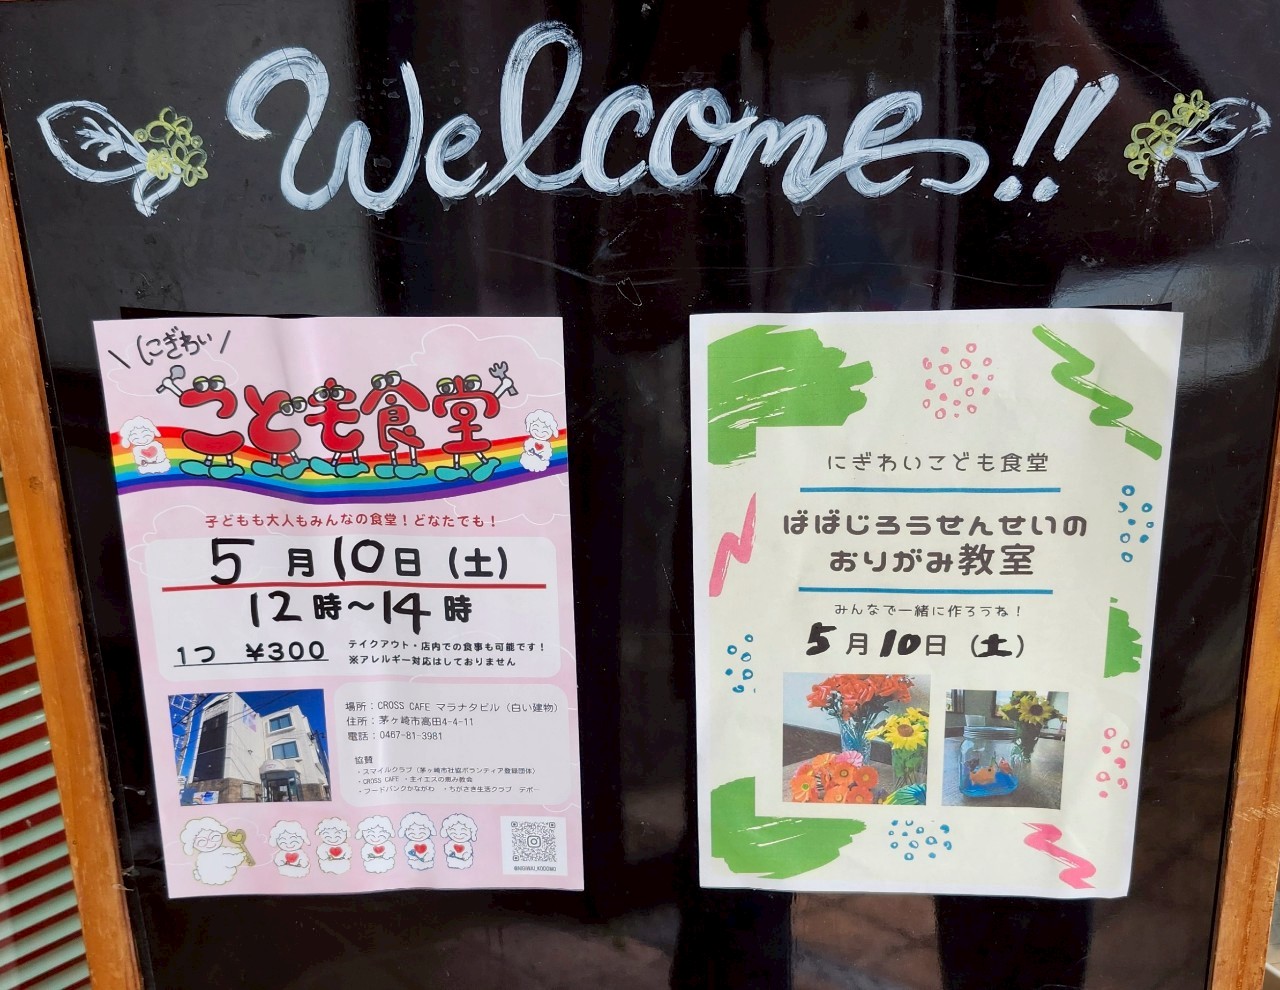 Welcome!!
\にぎわい/
こども食堂
子どもも大人もみんなの食堂！どなたでも！
5月10日（土）
12時～14時
1つ ¥300
テイクアウト・店内での食事も可能です！
※アレルギー対応はしておりません
場所：CROSS CAFE マラナタビル（白い建物）
住所：茅ヶ崎市高田4-4-11
電話：0467-81-3981
協賛
・スマイルクラブ（茅ヶ崎市社協ボランティア登録団体）
・CROSS CAFE ・主イエスの恵み教会
・フードバンクかながわ ・ちがさき生活クラブ デポー
にぎわいこども食堂
ばばじろうせんせいの
おりがみ教室
みんなで一緒に作ろうね！
5月10日（土）